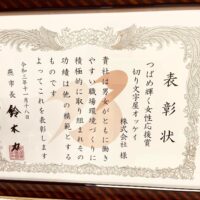 表彰状
つばめ輝く女性応援賞
切り文字屋オッケイ
株式会社 様
貴社は男女がともに働き
やすい職場環境づくりに
積極的に取り組まれその
功績は他の模範とする
ものです
よってこれを表彰します
令和三年十一月十八日
燕市長 鈴木力